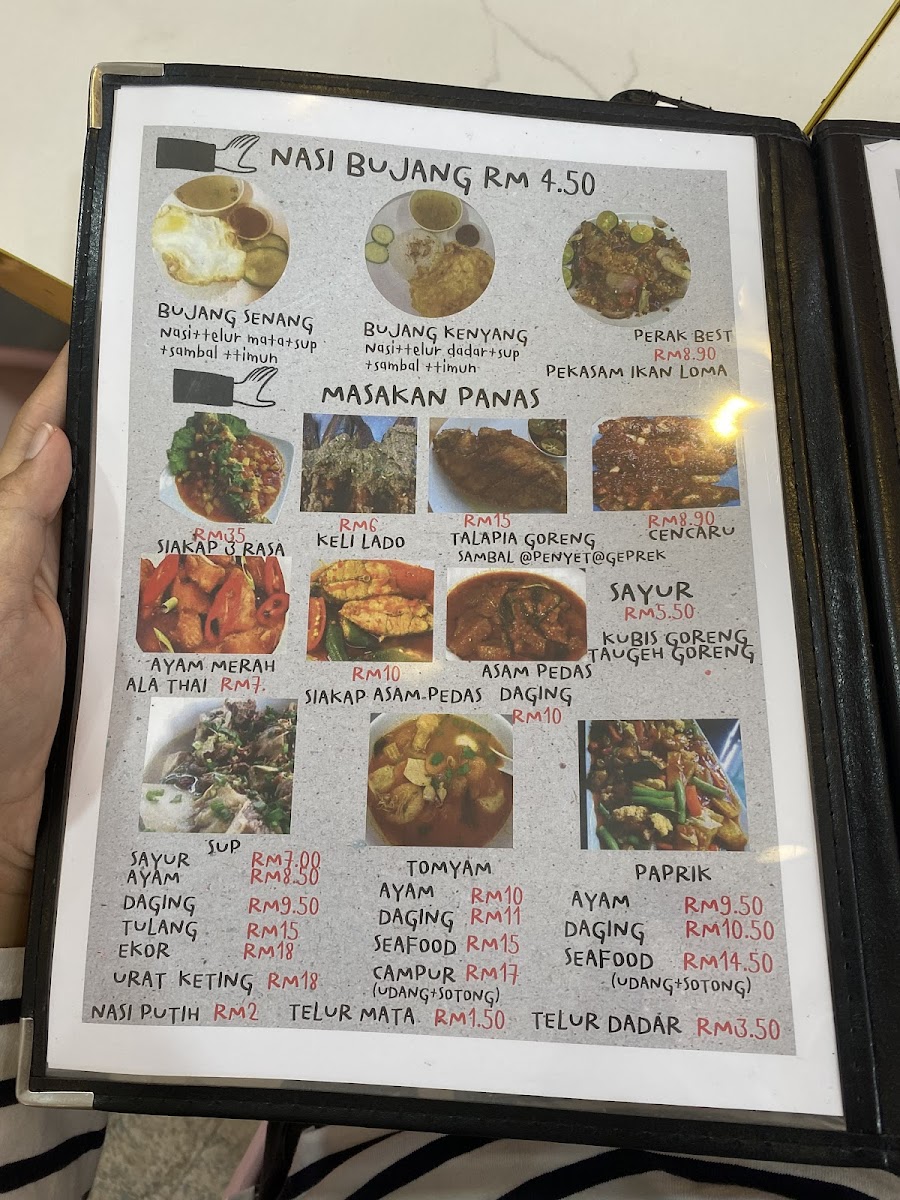 NASI BUJANG RM 4.50
BUJANG SENANG
Nasi+telur mata+sup
+sambal +timun
BUJANG KENYANG
Nasi+telur dadar+sup
+sambal +timun
PERAK BEST
RM8.90
PEKASAM IKAN LOMA
MASAKAN PANAS
RM35
SIAKAP 3 RASA
RM6
KELI LADO
RM15
TALAPIA GORENG
SAMBAL @PENYET@GEPREK
RM8.90
CENCARU
AYAM MERAH
ALA THAI RM7.
RM10
SIAKAP ASAM PEDAS
ASAM PEDAS
DAGING
RM10
SAYUR
RM5.50
KUBIS GORENG
TAUGEH GORENG
SUP
SAYUR RM7.00
AYAM RM8.50
DAGING RM9.50
TULANG RM15
EKOR RM18
URAT KETING RM18
TOMYAM
AYAM RM10
DAGING RM11
SEAFOOD RM15
CAMPUR RM17
(UDANG+SOTONG)
PAPRIK
AYAM RM9.50
DAGING RM10.50
SEAFOOD RM14.50
(UDANG+SOTONG)
NASI PUTIH RM2 TELUR MATA RM1.50 TELUR DADAR RM3.50